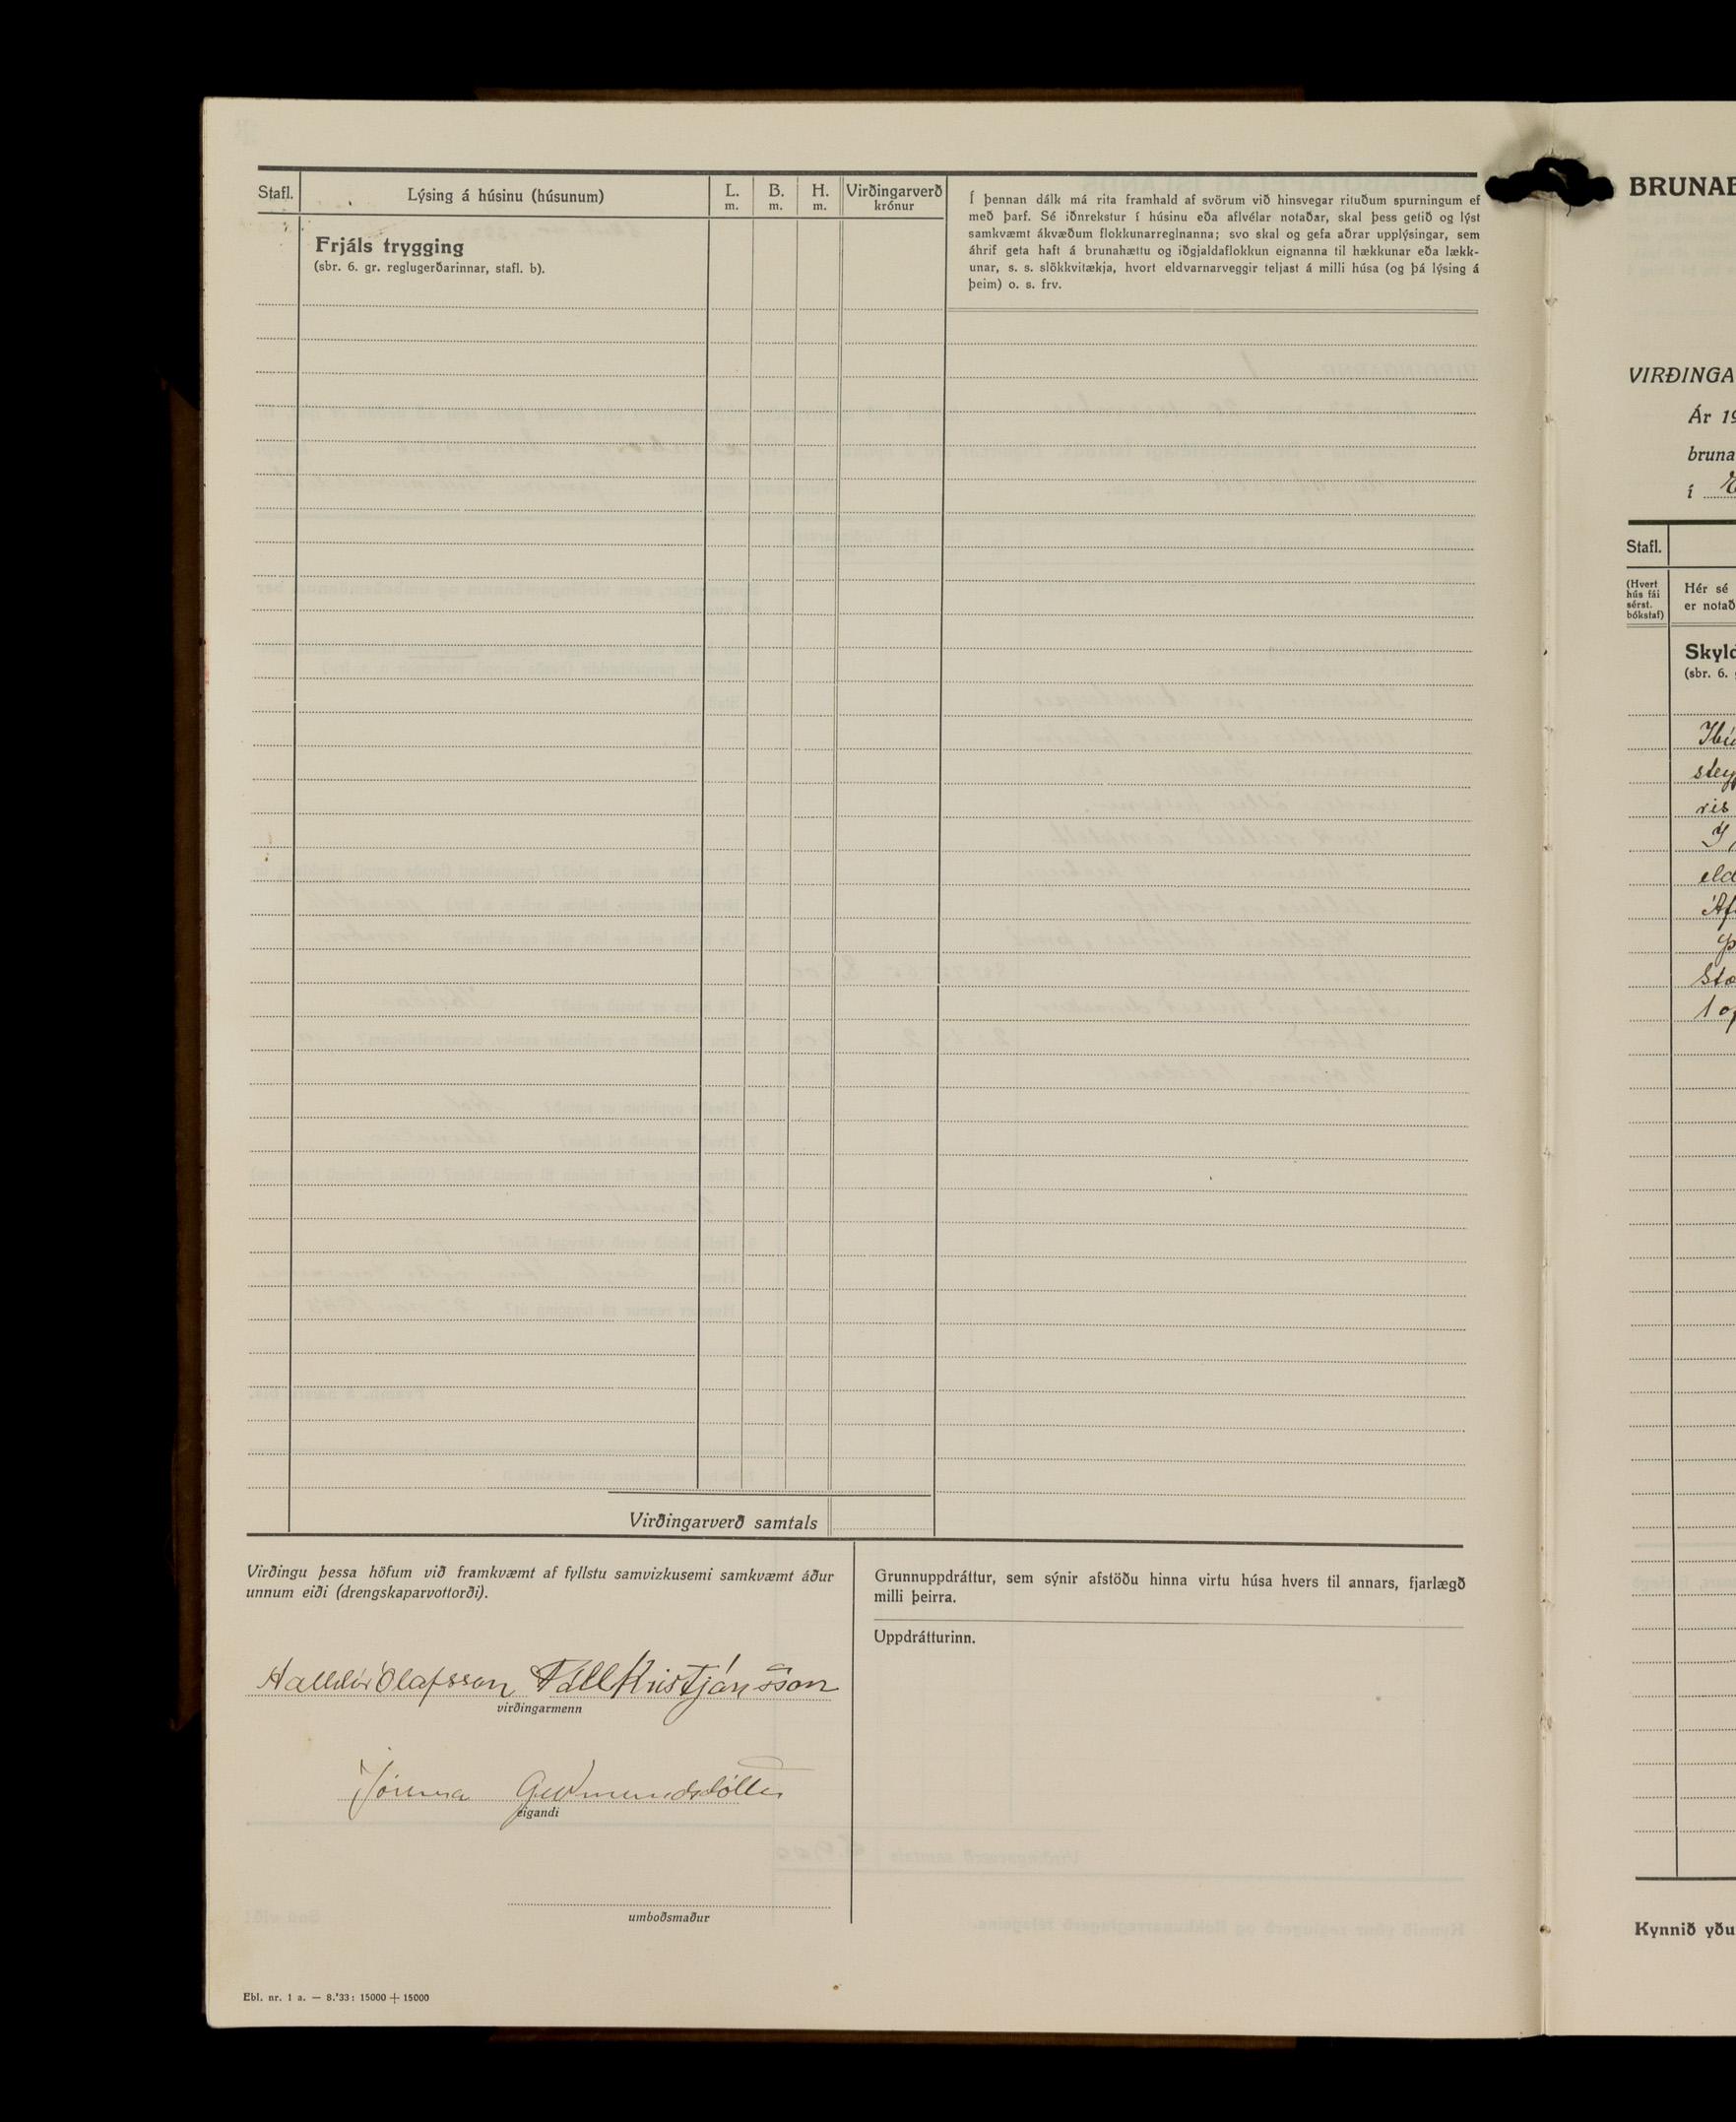 Stafl.
Lýsing á húsinu (húsunum)
L.
m.
B.
m.
H.
m.
Virðingarverð
krónur
Í þennan dálk má rita framhald af svörum við hinsvegar rituðum spurningum ef
með þarf. Sé iðnrekstur í húsinu eða aflvélar notaðar, skal þess getið og lýst
samkvæmt ákvæðum flokkunarreglnanna; svo skal og gefa aðrar upplýsingar, sem
áhrif geta haft á brunahættu og iðgjaldaflokkun eignanna til hækkunar eða lækk-
unar, s. s. slökkvitækja, hvort eldvarnarveggir teljast á milli húsa (og þá lýsing á
þeim) o. s. frv.
Frjáls trygging
(sbr. 6. gr. reglugerðarinnar, stafl. b).
Virðingarverð samtals
Virðingu þessa höfum við framkvæmt af fyllstu samvizkusemi samkvæmt áður
unnum eiði (drengskaparvottorði).
Halldór Olafsson Páll Kristjánsson
virðingarmenn
Jónína Guðmundsdóttir
eigandi
umboðsmaður
Grunnuppdráttur, sem sýnir afstöðu hinna virtu húsa hvers til annars, fjarlægð
milli þeirra.
Uppdrátturinn.
Ebl. nr. 1 a. — 8.'33: 15000 + 15000
BRUNAB
VIRÐINGA
Ár 19
bruna
í
Stafl.
(Hvert
hús fái
sérst.
bókstaf)
Hér sé
er notað
Skyld
(sbr. 6.
Íbú
steyp
ris
eld
Stæ
Kynnið yðu